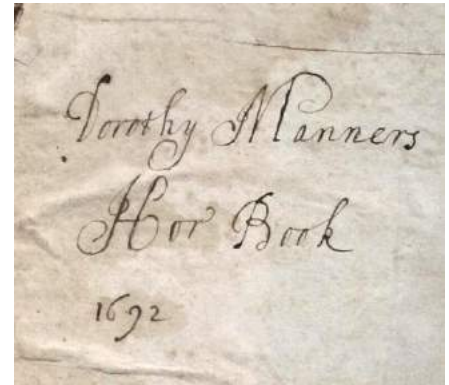 Dorothy Manners
Her Book
1692